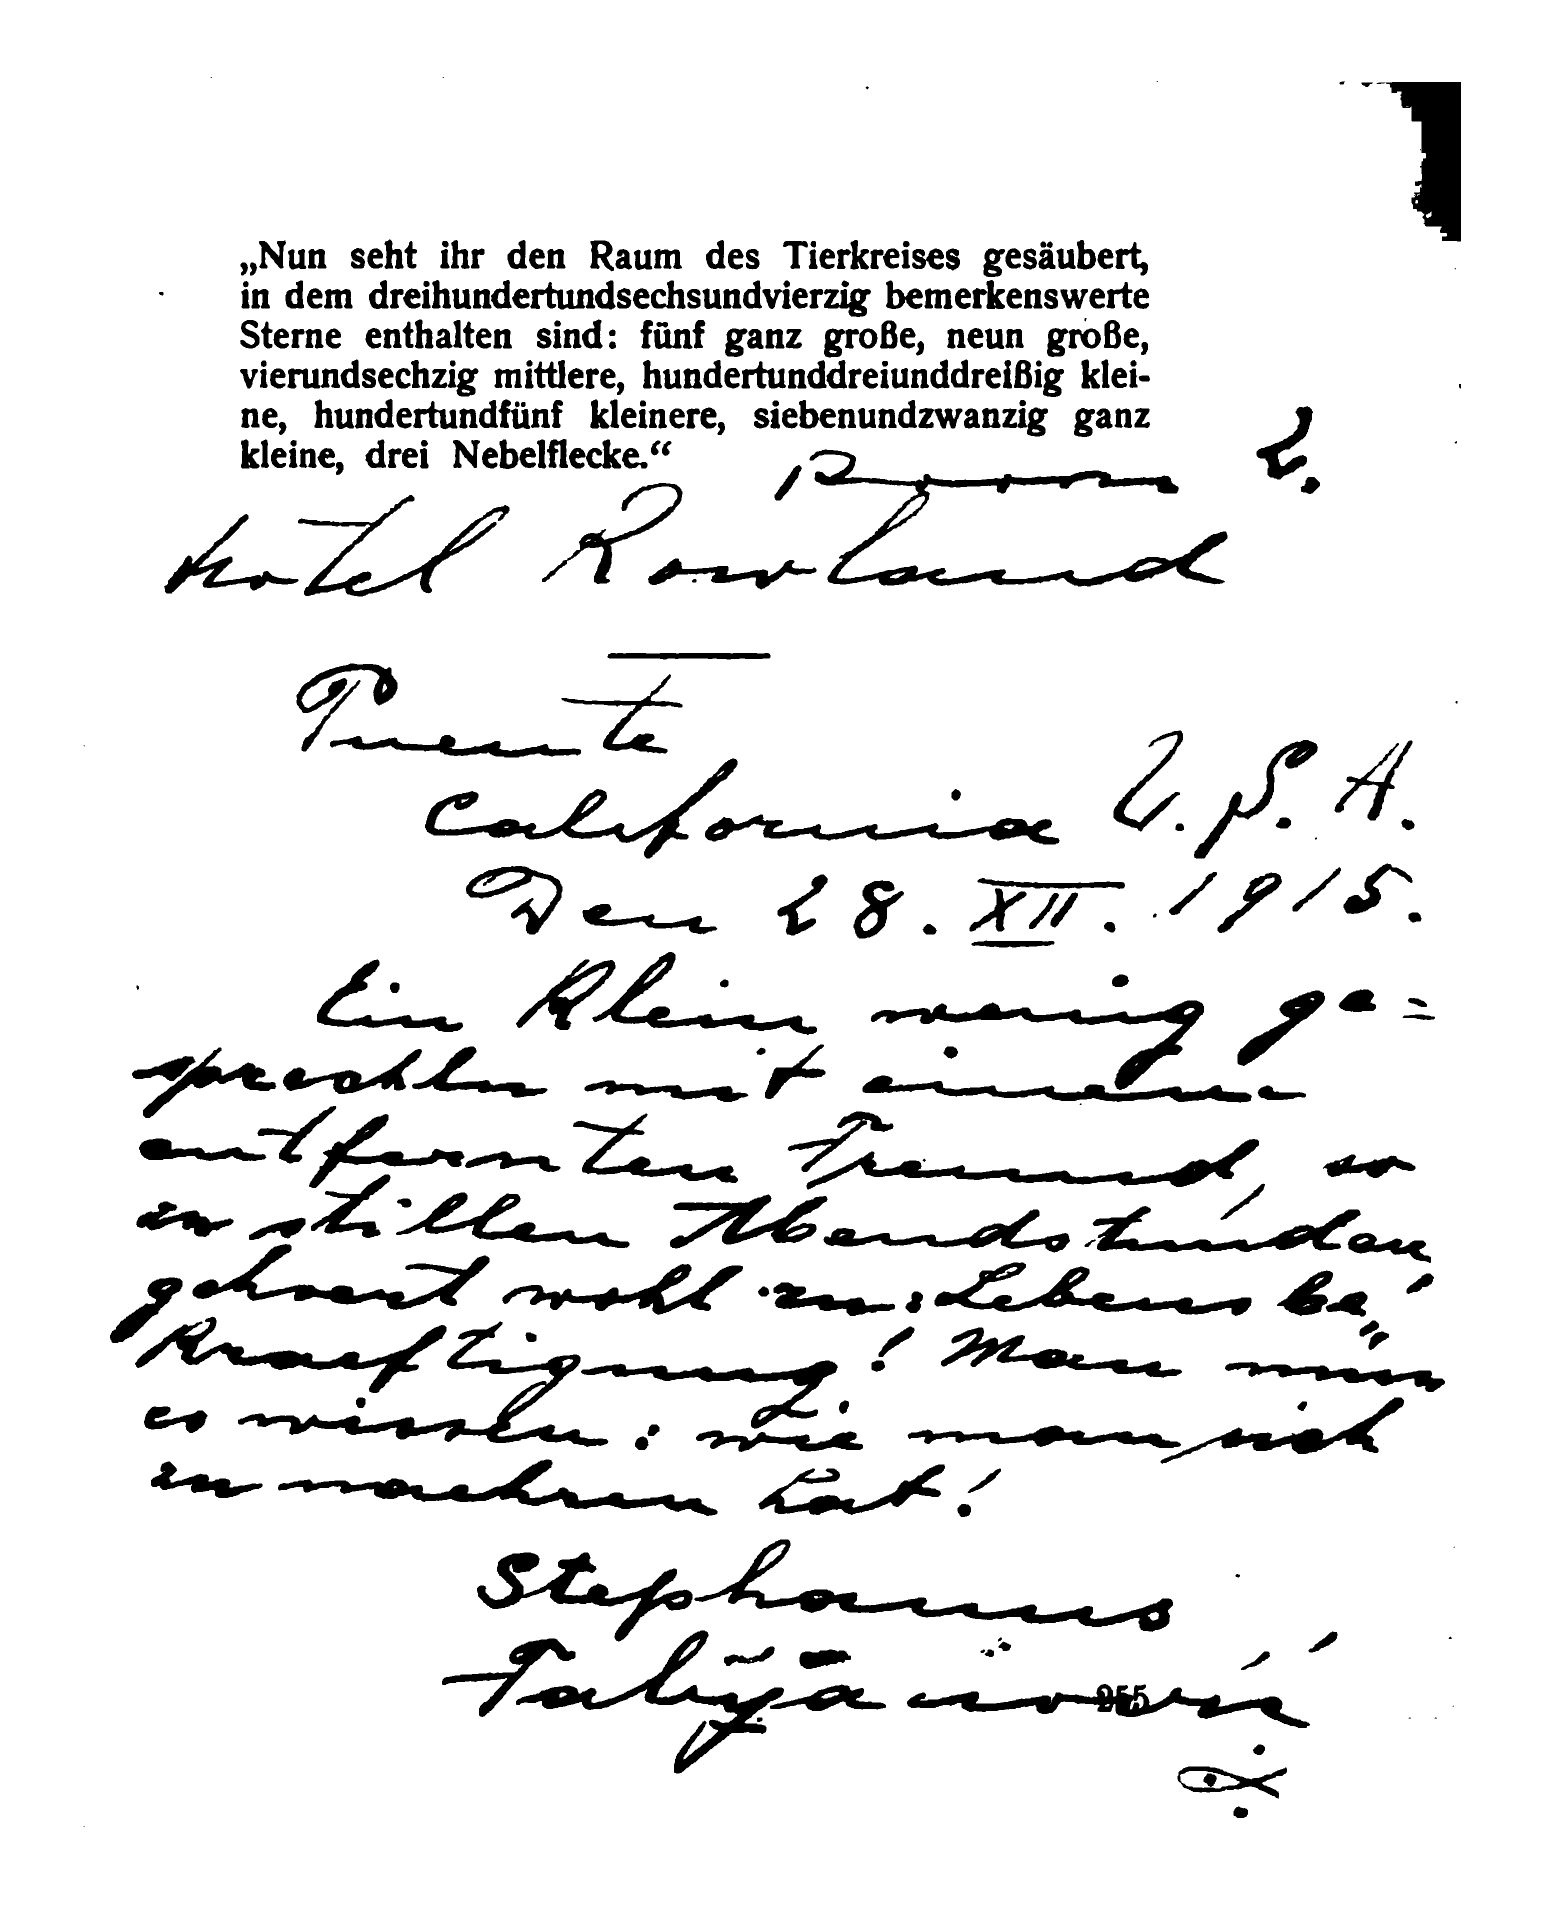 „Nun seht ihr den Raum des Tierkreises gesäubert,
in dem dreihundertundsechsundvierzig bemerkenswerte
Sterne enthalten sind: fünf ganz große, neun große,
vierundsechzig mittlere, hundertunddreiunddreißig klei-
ne, hundertundfünf kleinere, siebenundzwanzig ganz
kleine, drei Nebelflecke.“
Room 2.
Hotel Rowland
Puente
California U.S.A.
Den 28. XII. 1915.
Ein Klein wenig ge=
sprochen mit einem
entfernten Freund, so
in stillen Abendstunden
gehoert wohl zu: Lebensbe"
Kraeftigung! Man muss
es wissen: wie man sich
zu naehren hat!
Stephanus
255